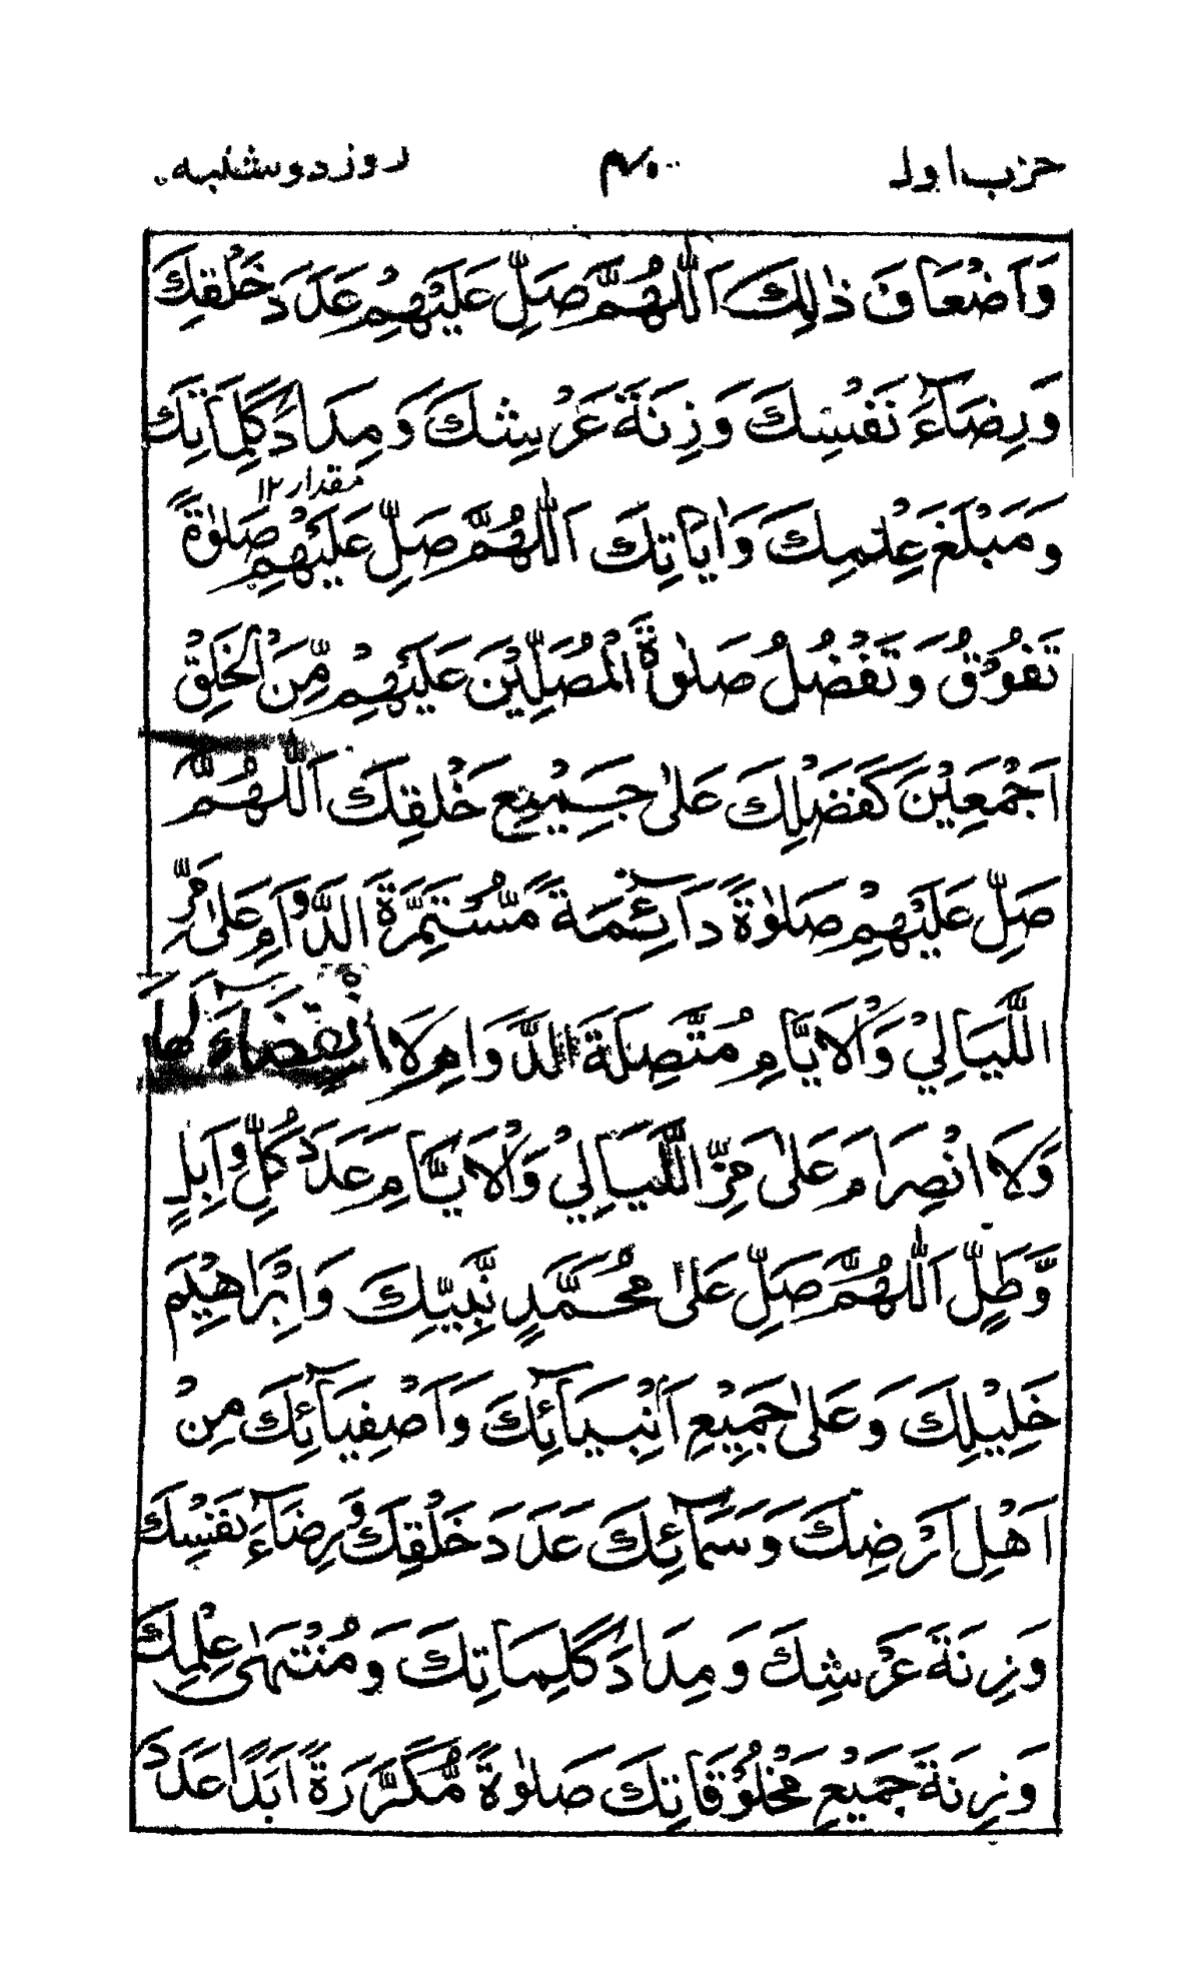 حزب اول ۴۰ روز دوشنبه
وَاَضْعَافَ ذٰلِكَ اَللّٰهُمَّ صَلِّ عَلَيْهِمْ عَدَدَ خَلْقِكَ
وَرِضَآءَ نَفْسِكَ وَزِنَةَ عَرْشِكَ وَمِدَادَ كَلِمَاتِكَ
مقدار ۱۲
وَمَبْلَغَ عِلْمِكَ وَاٰيَاتِكَ اَللّٰهُمَّ صَلِّ عَلَيْهِمْ صَلٰوةً
تَفُوْقُ وَتَفْضُلُ صَلٰوةَ الْمُصَلِّيْنَ عَلَيْهِمْ مِّنَ الْخَلْقِ
اَجْمَعِيْنَ كَفَضْلِكَ عَلٰى جَمِيْعِ خَلْقِكَ اَللّٰهُمَّ
صَلِّ عَلَيْهِمْ صَلٰوةً دَآئِمَةً مُّسْتَمِرَّةَ الدَّوَامِ عَلٰى مَرِّ
اللَّيَالِيْ وَالْاَيَّامِ مُتَّصِلَةَ الدَّوَامِ لَا انْقِضَآءَ لَهَا
وَلَا انْصِرَامَ عَلٰى مَرِّ اللَّيَالِيْ وَالْاَيَّامِ عَدَدَ كُلِّ وَابِلٍ
وَّطَلٍّ اَللّٰهُمَّ صَلِّ عَلٰى مُحَمَّدٍ نَّبِيِّكَ وَاِبْرَاهِيْمَ
خَلِيْلِكَ وَعَلٰى جَمِيْعِ اَنْبِيَآئِكَ وَاَصْفِيَآئِكَ مِنْ
اَهْلِ اَرْضِكَ وَسَمَآئِكَ عَدَدَ خَلْقِكَ وَرِضَآءَ نَفْسِكَ
وَزِنَةَ عَرْشِكَ وَمِدَادَ كَلِمَاتِكَ وَمُنْتَهٰى عِلْمِكَ
وَزِنَةَ جَمِيْعِ مَخْلُوْقَاتِكَ صَلٰوةً مُّكَرَّرَةً اَبَدًا عَدَدَ